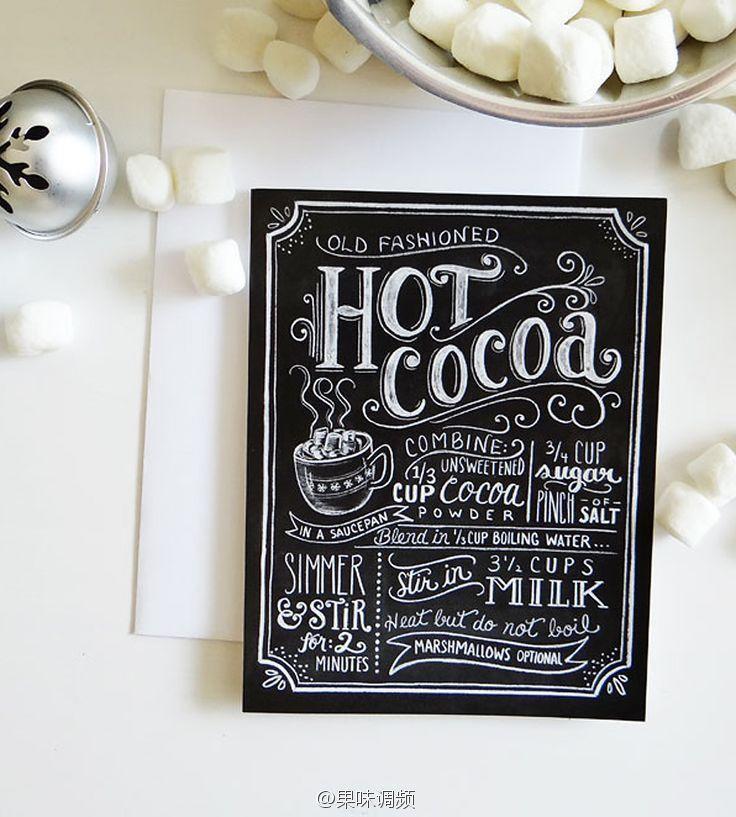 OLD FASHIONED
HOT
COCOA
COMBINE:
1/3 CUP
UNSWEETENED
Cocoa
POWDER
3/4 CUP
sugar
PINCH OF
SALT
IN A SAUCEPAN
Blend in 1/3 CUP BOILING WATER...
SIMMER
& STIR
for: 2
MINUTES
Stir in
3 1/2 CUPS
MILK
Heat but do not boil
MARSHMALLOWS OPTIONAL
@果味调频